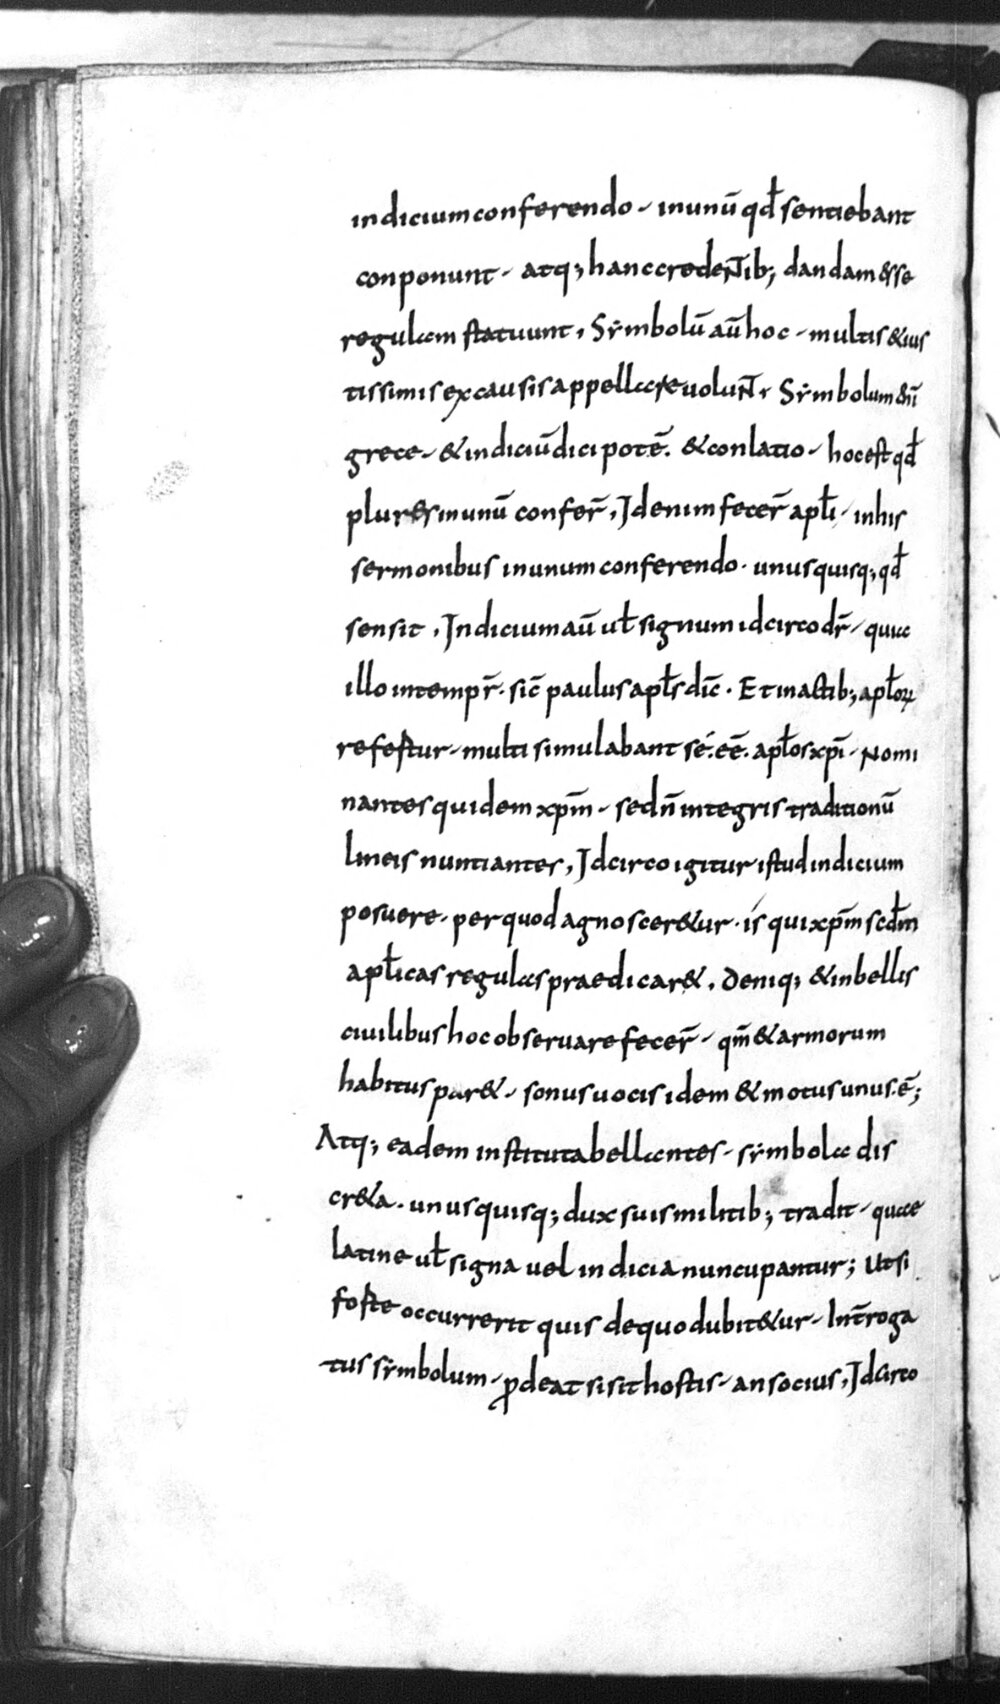 indicium conferendo - inunū qđ sentiebant
conponunt - atq; hanc credeNT̄ib; dandam esse
regulam statuunt, Sẏmbolū aū hoc - multis & ius
tissimis ex causis appellare voluNT̄, Sẏmbolum eni
grece - & indiciū dici potē. & conlatio - hoc est qđ
plures in unū confer̄, Id enim fecer̄ apłi - in his
sermonibus in unum conferendo. unusquisq; qđ
sensit, Indicium aū uł signum idcirco dr̄ - quia
illo in tempr̄. sic̄ paulus apłs dic̄. Et in actib; apłoꝝ
refertur - multi simulabant se. eē. apłos xp̄i - Nomi
nantes quidem xp̄m - sed n̄ integris traditionū
lineis nuntiantes, Idcirco igitur istud indicium
posuere - per quod agnoscer&ur. is qui xp̄m scđm
apłicas regulas praedicar&, Deniq; & in bellis
ciuilibus hoc obseruare fecer̄ - qm̄ & armorum
habitus par& - sonus uocis idem & motus unus. ē;
Atq; eadem instituta bellantes - sẏmbola dis
cr&a. unusquisq; dux suis militib; tradit - quae
latine uł signa uel indicia nuncupantur; Ut si
forte occurrerit quis de quo dubit&ur - Int̄roga
tus sẏmbolum - ꝓdeat si sit hostis - an socius, Idcirco